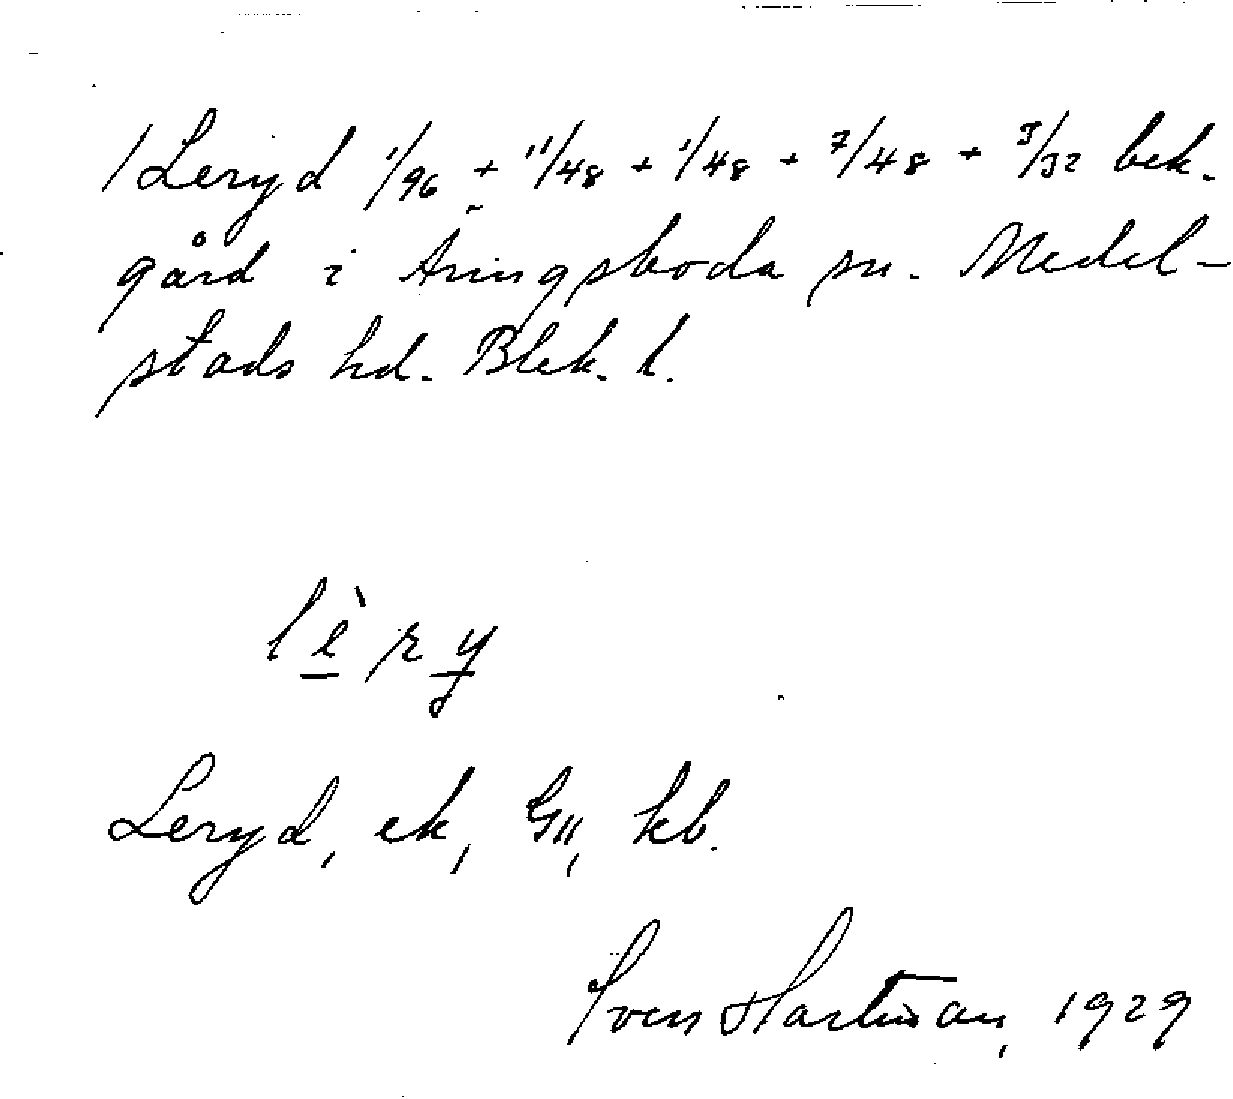 1 Leryd 1/96 + 11/48 + 1/48 + 7/48 + 3/32 bek.
gård i Åringsboda sn. Medel-
stads hd. Blek. l.
lèry
Leryd, ek, GII, kb.
Sven Hartman, 1929